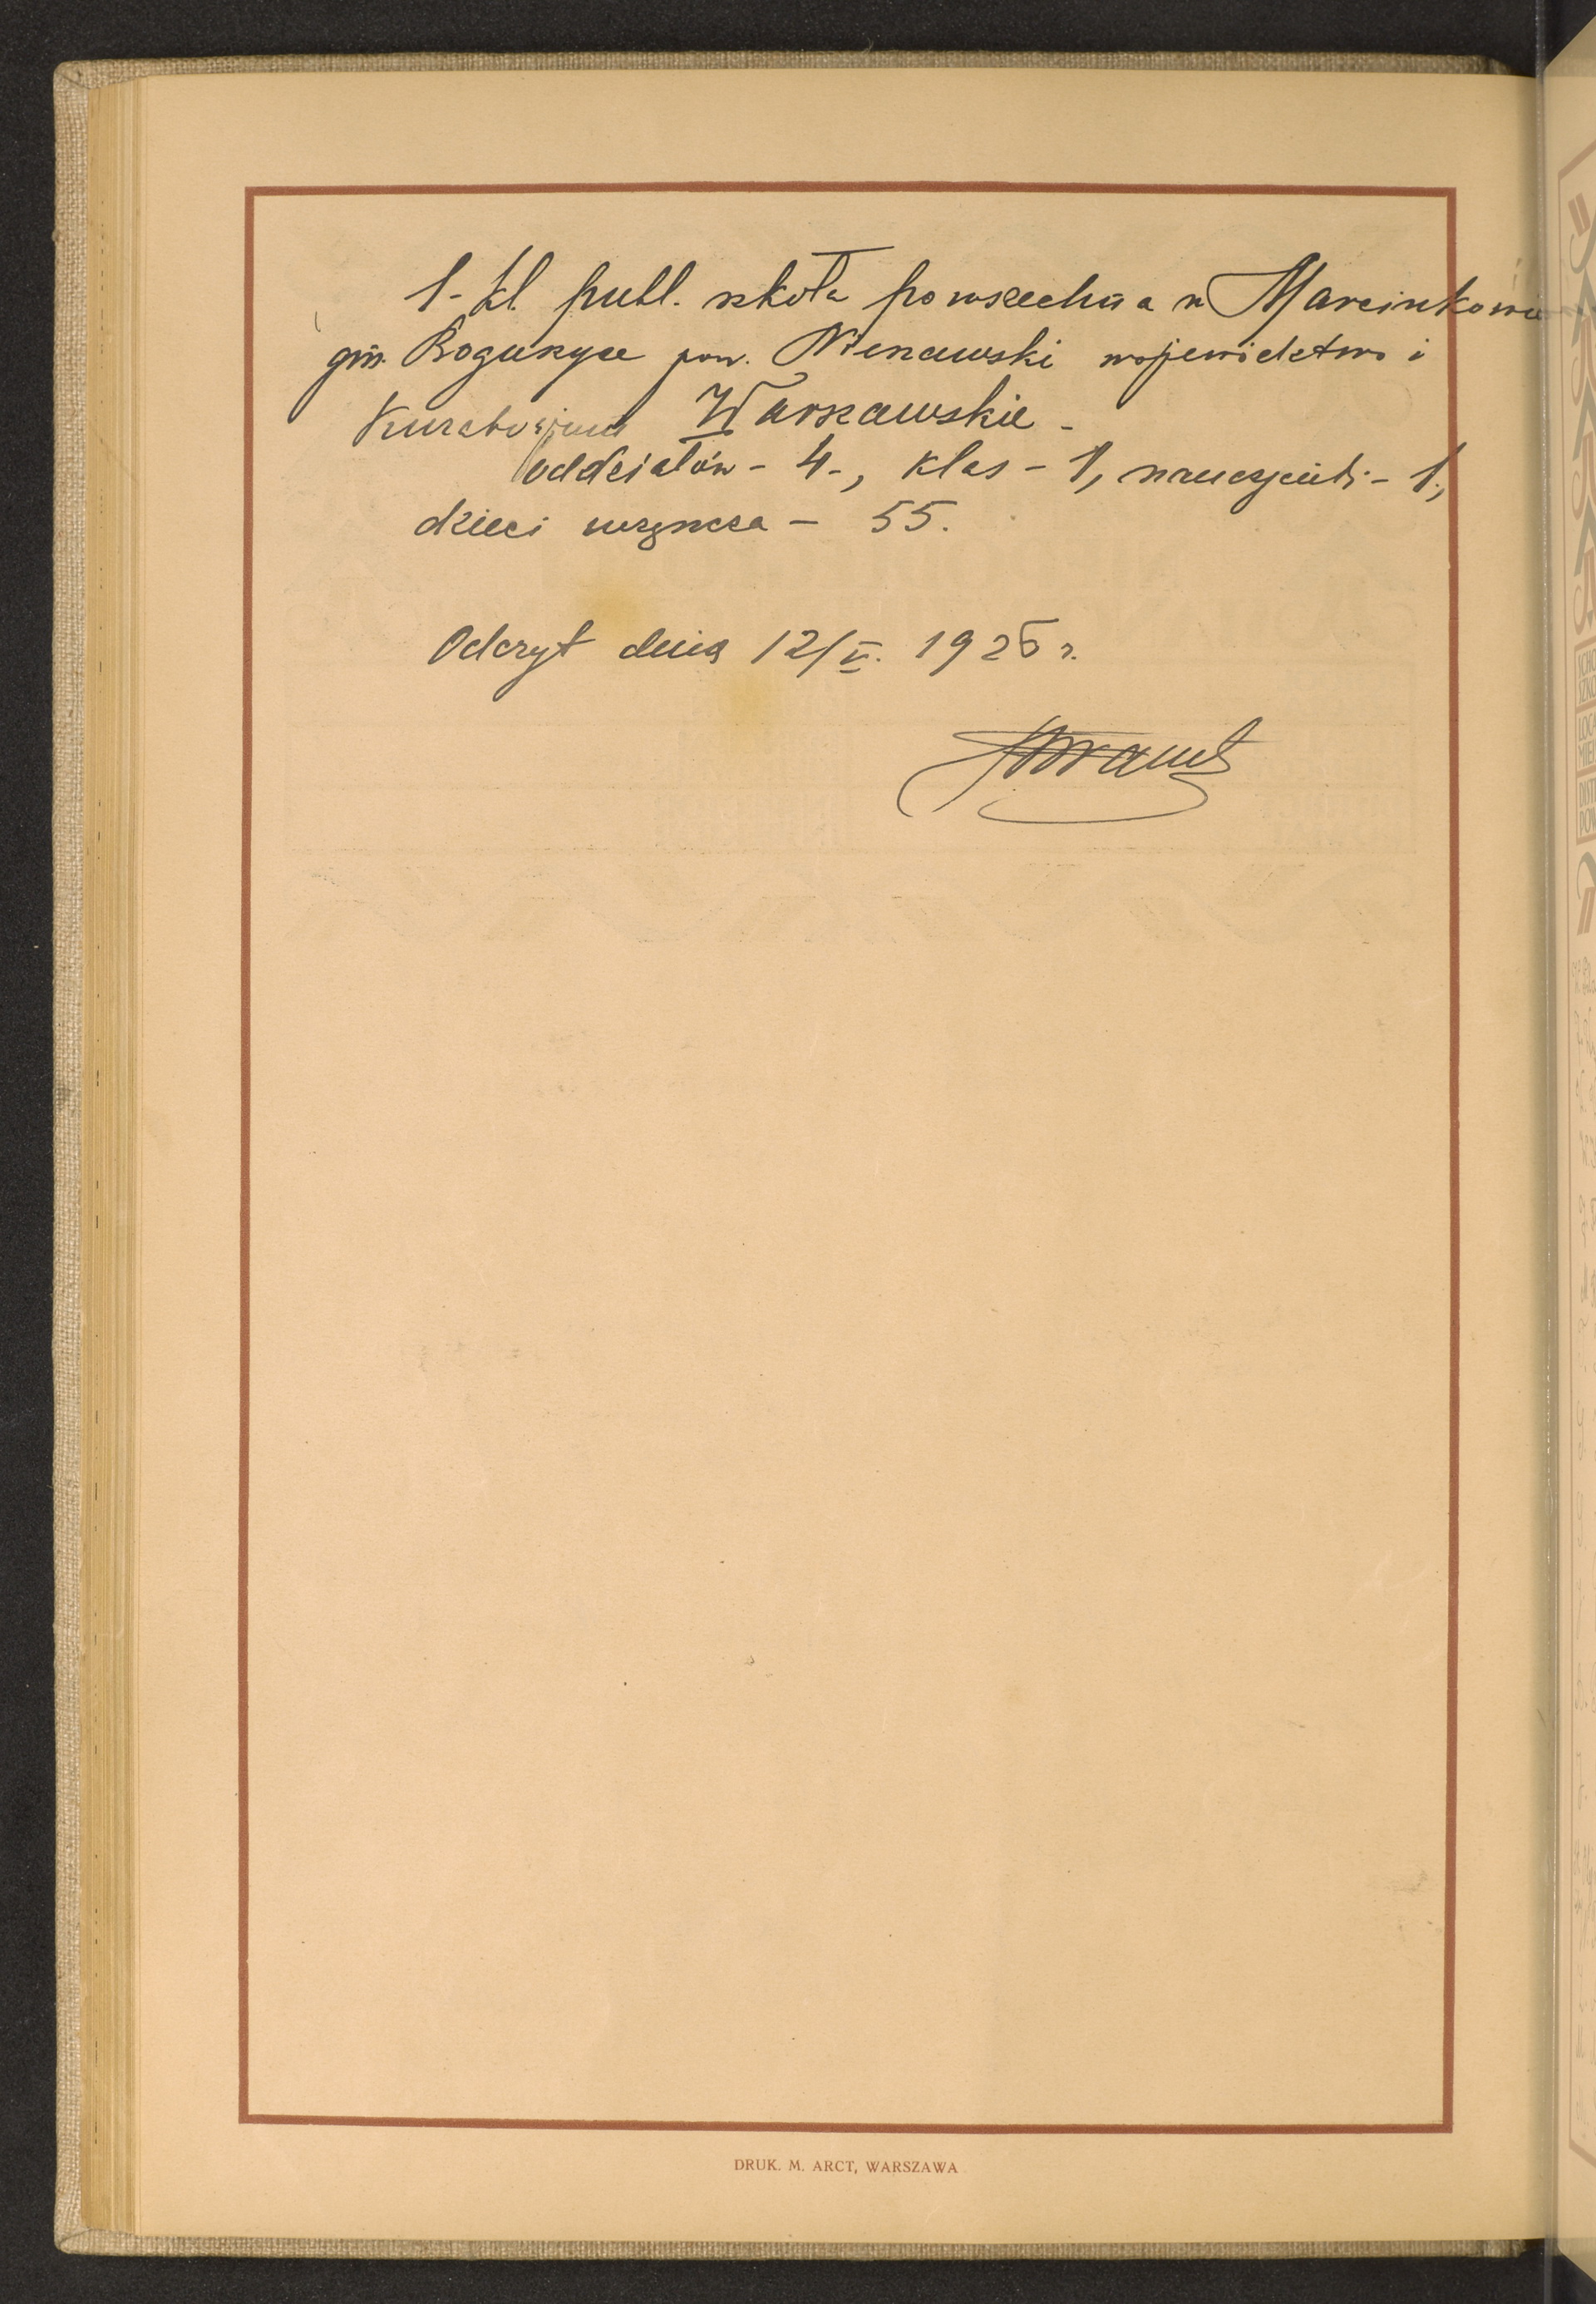 1-kl. publ. szkoła powszechna w Marcinkowie
gm. Boguszyce pow. Nieszawski województwo i
Kuratorjum Warszawskie -
oddziałów - 4-, klas - 1, nauczycieli - 1,
dzieci uczęszcza - 55.
Odczyt dnia 12/V. 1926 r.
DRUK. M. ARCT, WARSZAWA